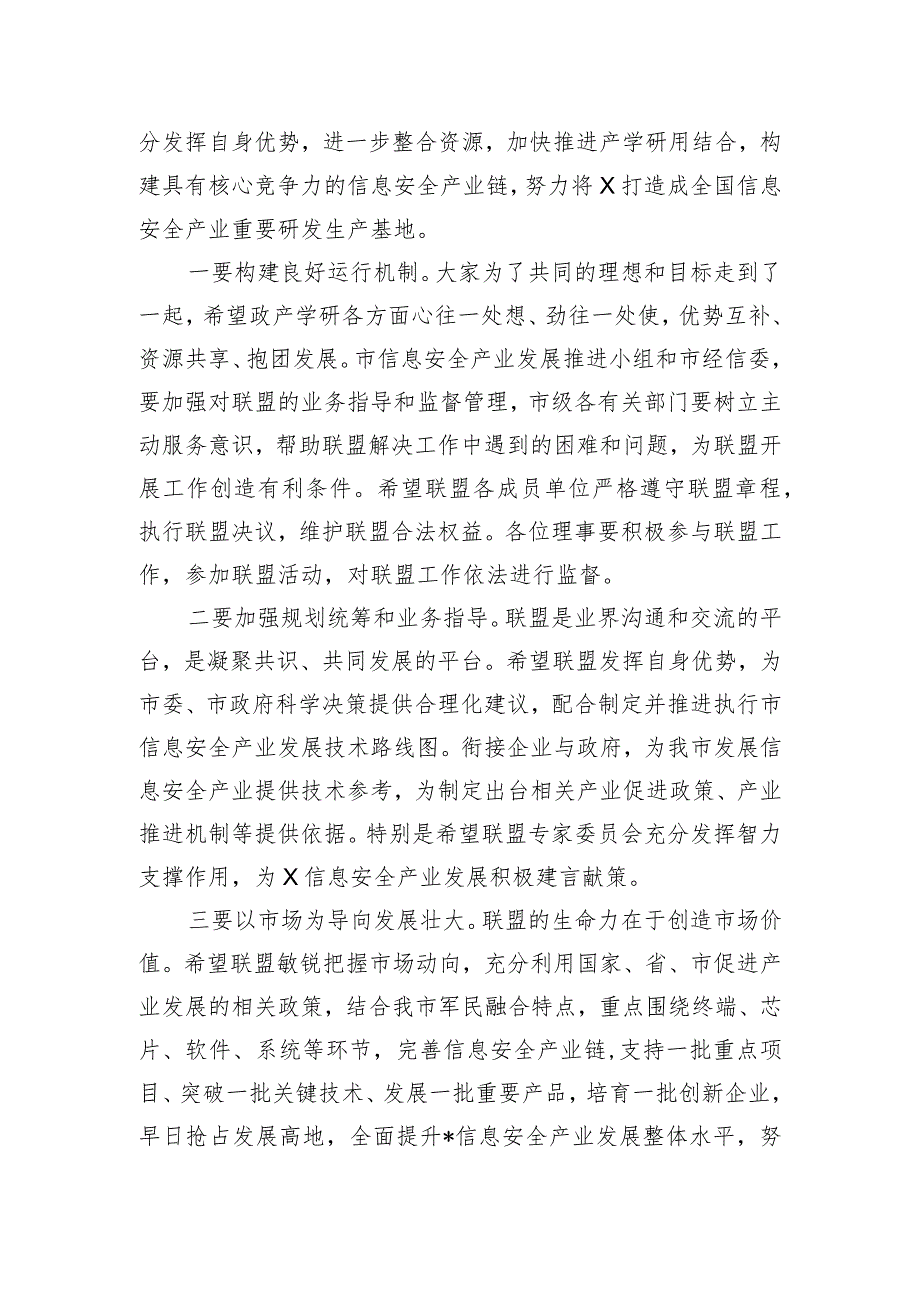 分发挥自身优势，进一步整合资源，加快推进产学研用结合，构
建具有核心竞争力的信息安全产业链，努力将X打造成全国信息
安全产业重要研发生产基地。
一要构建良好运行机制。大家为了共同的理想和目标走到了
一起，希望政产学研各方面心往一处想、劲往一处使，优势互补、
资源共享、抱团发展。市信息安全产业发展推进小组和市经信委，
要加强对联盟的业务指导和监督管理，市级各有关部门要树立主
动服务意识，帮助联盟解决工作中遇到的困难和问题，为联盟开
展工作创造有利条件。希望联盟各成员单位严格遵守联盟章程，
执行联盟决议，维护联盟合法权益。各位理事要积极参与联盟工
作，参加联盟活动，对联盟工作依法进行监督。
二要加强规划统筹和业务指导。联盟是业界沟通和交流的平
台，是凝聚共识、共同发展的平台。希望联盟发挥自身优势，为
市委、市政府科学决策提供合理化建议，配合制定并推进执行市
信息安全产业发展技术路线图。衔接企业与政府，为我市发展信
息安全产业提供技术参考，为制定出台相关产业促进政策、产业
推进机制等提供依据。特别是希望联盟专家委员会充分发挥智力
支撑作用，为X信息安全产业发展积极建言献策。
三要以市场为导向发展壮大。联盟的生命力在于创造市场价
值。希望联盟敏锐把握市场动向，充分利用国家、省、市促进产
业发展的相关政策，结合我市军民融合特点，重点围绕终端、芯
片、软件、系统等环节，完善信息安全产业链,支持一批重点项
目、突破一批关键技术、发展一批重要产品，培育一批创新企业，
早日抢占发展高地，全面提升*信息安全产业发展整体水平，努